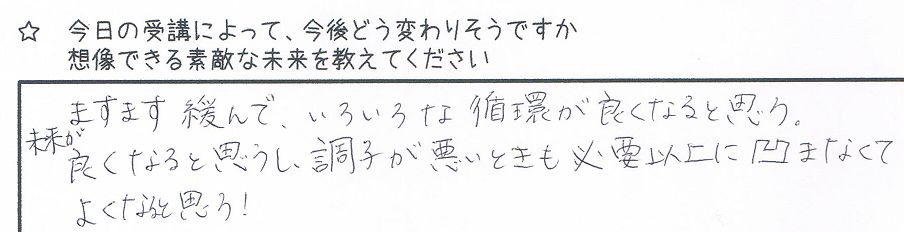 ☆ 今日の受講によって、今後どう変わりそうですか
想像できる素敵な未来を教えてください
ますます緩んで、いろいろな循環が良くなると思う。
未来が
良くなると思うし、調子が悪いときも必要以上に凹まなくて
よくなると思う!